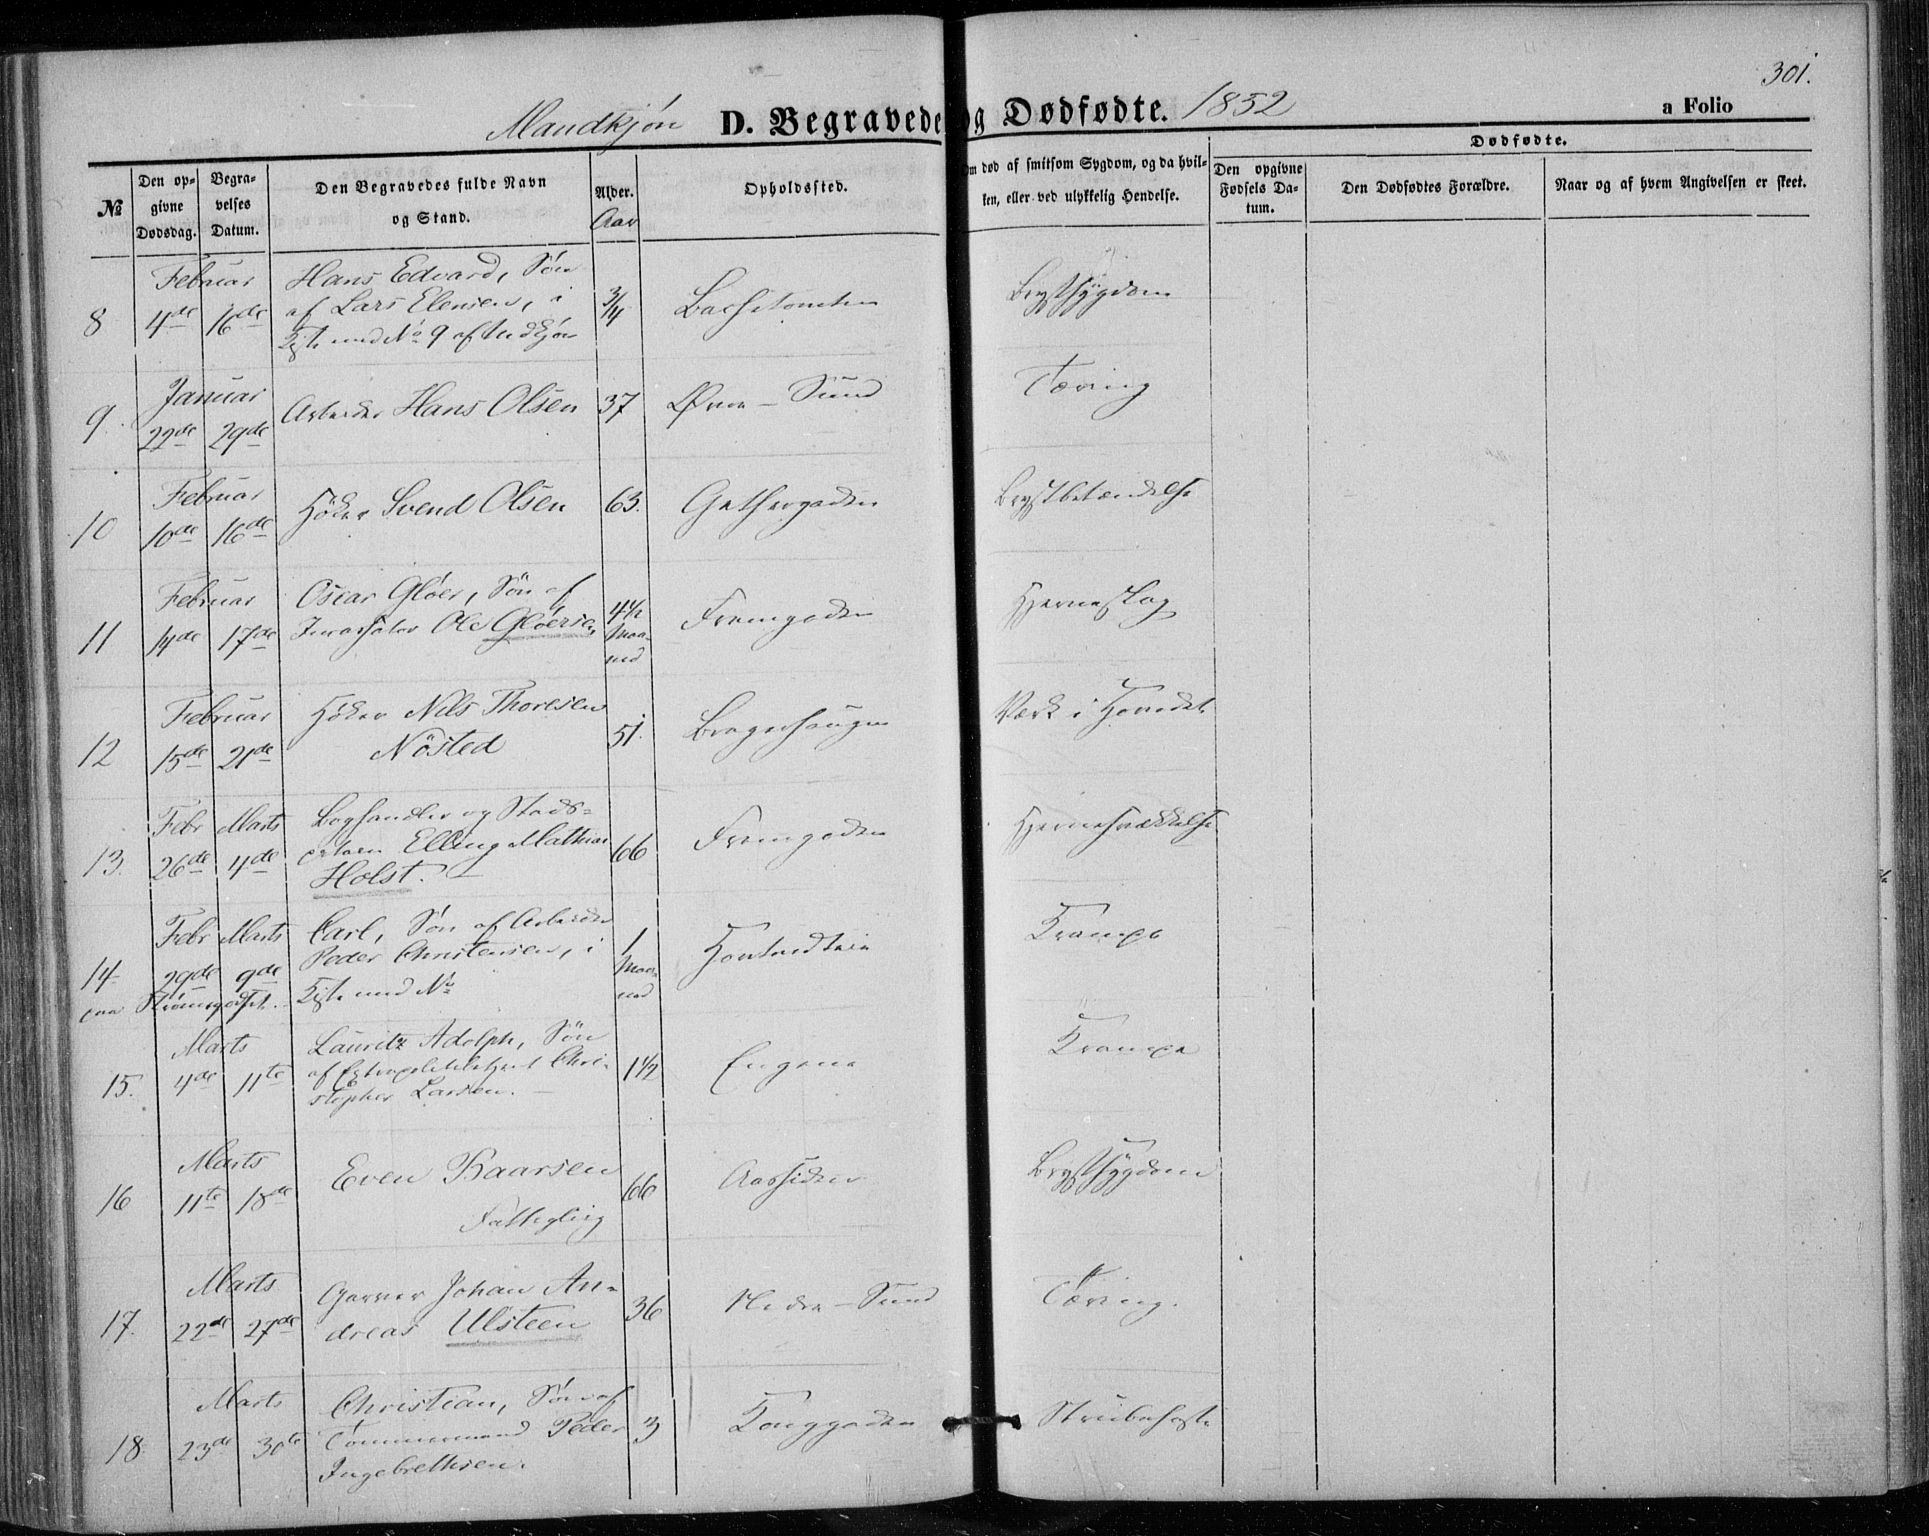 301.
Mandkjøn D. Begravede og Dødfødte. 1852 a Folio
Dødfødte.
№ Den opgivne Dødsdag. Begravelses Datum. Den Begravedes fulde Navn og Stand. Alder. Aar Opholdssted. Om død af smitsom Sygdom, og da hvilken, eller ved ulykkelig Hendelse. Den opgivne Fødsels Datum. Den Dødfødtes Forældre. Naar og af hvem Angivelsen er skeet.
Februar Hans Edvard, Søn
8 4de 16de af Lars Elensen, i 3/4 Brystsygdom
Kiste med No 9 af Qvindkjøn
Januar
9. 22de 29de Arbeider Hans Olsen 37 Øvre-Sund Tæring
Februar
10 10de 16de Höker Svend Olsen 63. Gethergaden Brystbetændelse
Februar Oscar Gløer, Søn af
11 14de 17de Ole Gløersen 4 1/2 Maaned Fremgaden Hjerneslag
Februar Höker Nils Thoresen
12 15de 21de Nösted 51. Bragerhaugen Værk i Hovedet
Febr Marts Boghandler og Stads-
13. 26de 4de Elling Mathias 66 Fremgaden
Holst.
Febr Marts Carl, Søn af Arbeider
14 29de 9de Peder Christensen, i 1 Maaned Krampe
paa Strømsgodset. Kiste med No
Marts Lauritz Adolph, Søn
15. 4de 11te af Extrapolitibetjent Chri- 1 1/2 Engene Krampe
stopher Larsen.
Marts
16 11te 18de Even Baarsen 66 Aassiden Brystsygdom
Fattiglig
Marts Garver Johan An-
17. 22de 27de dreas Ulsteen 36 Nedre-Sund Tæring.
Marts Christian, Søn af
18. 23de 30te Tømmermand Peder 3 Konggaden Strubehoste
Ingebrethsen.